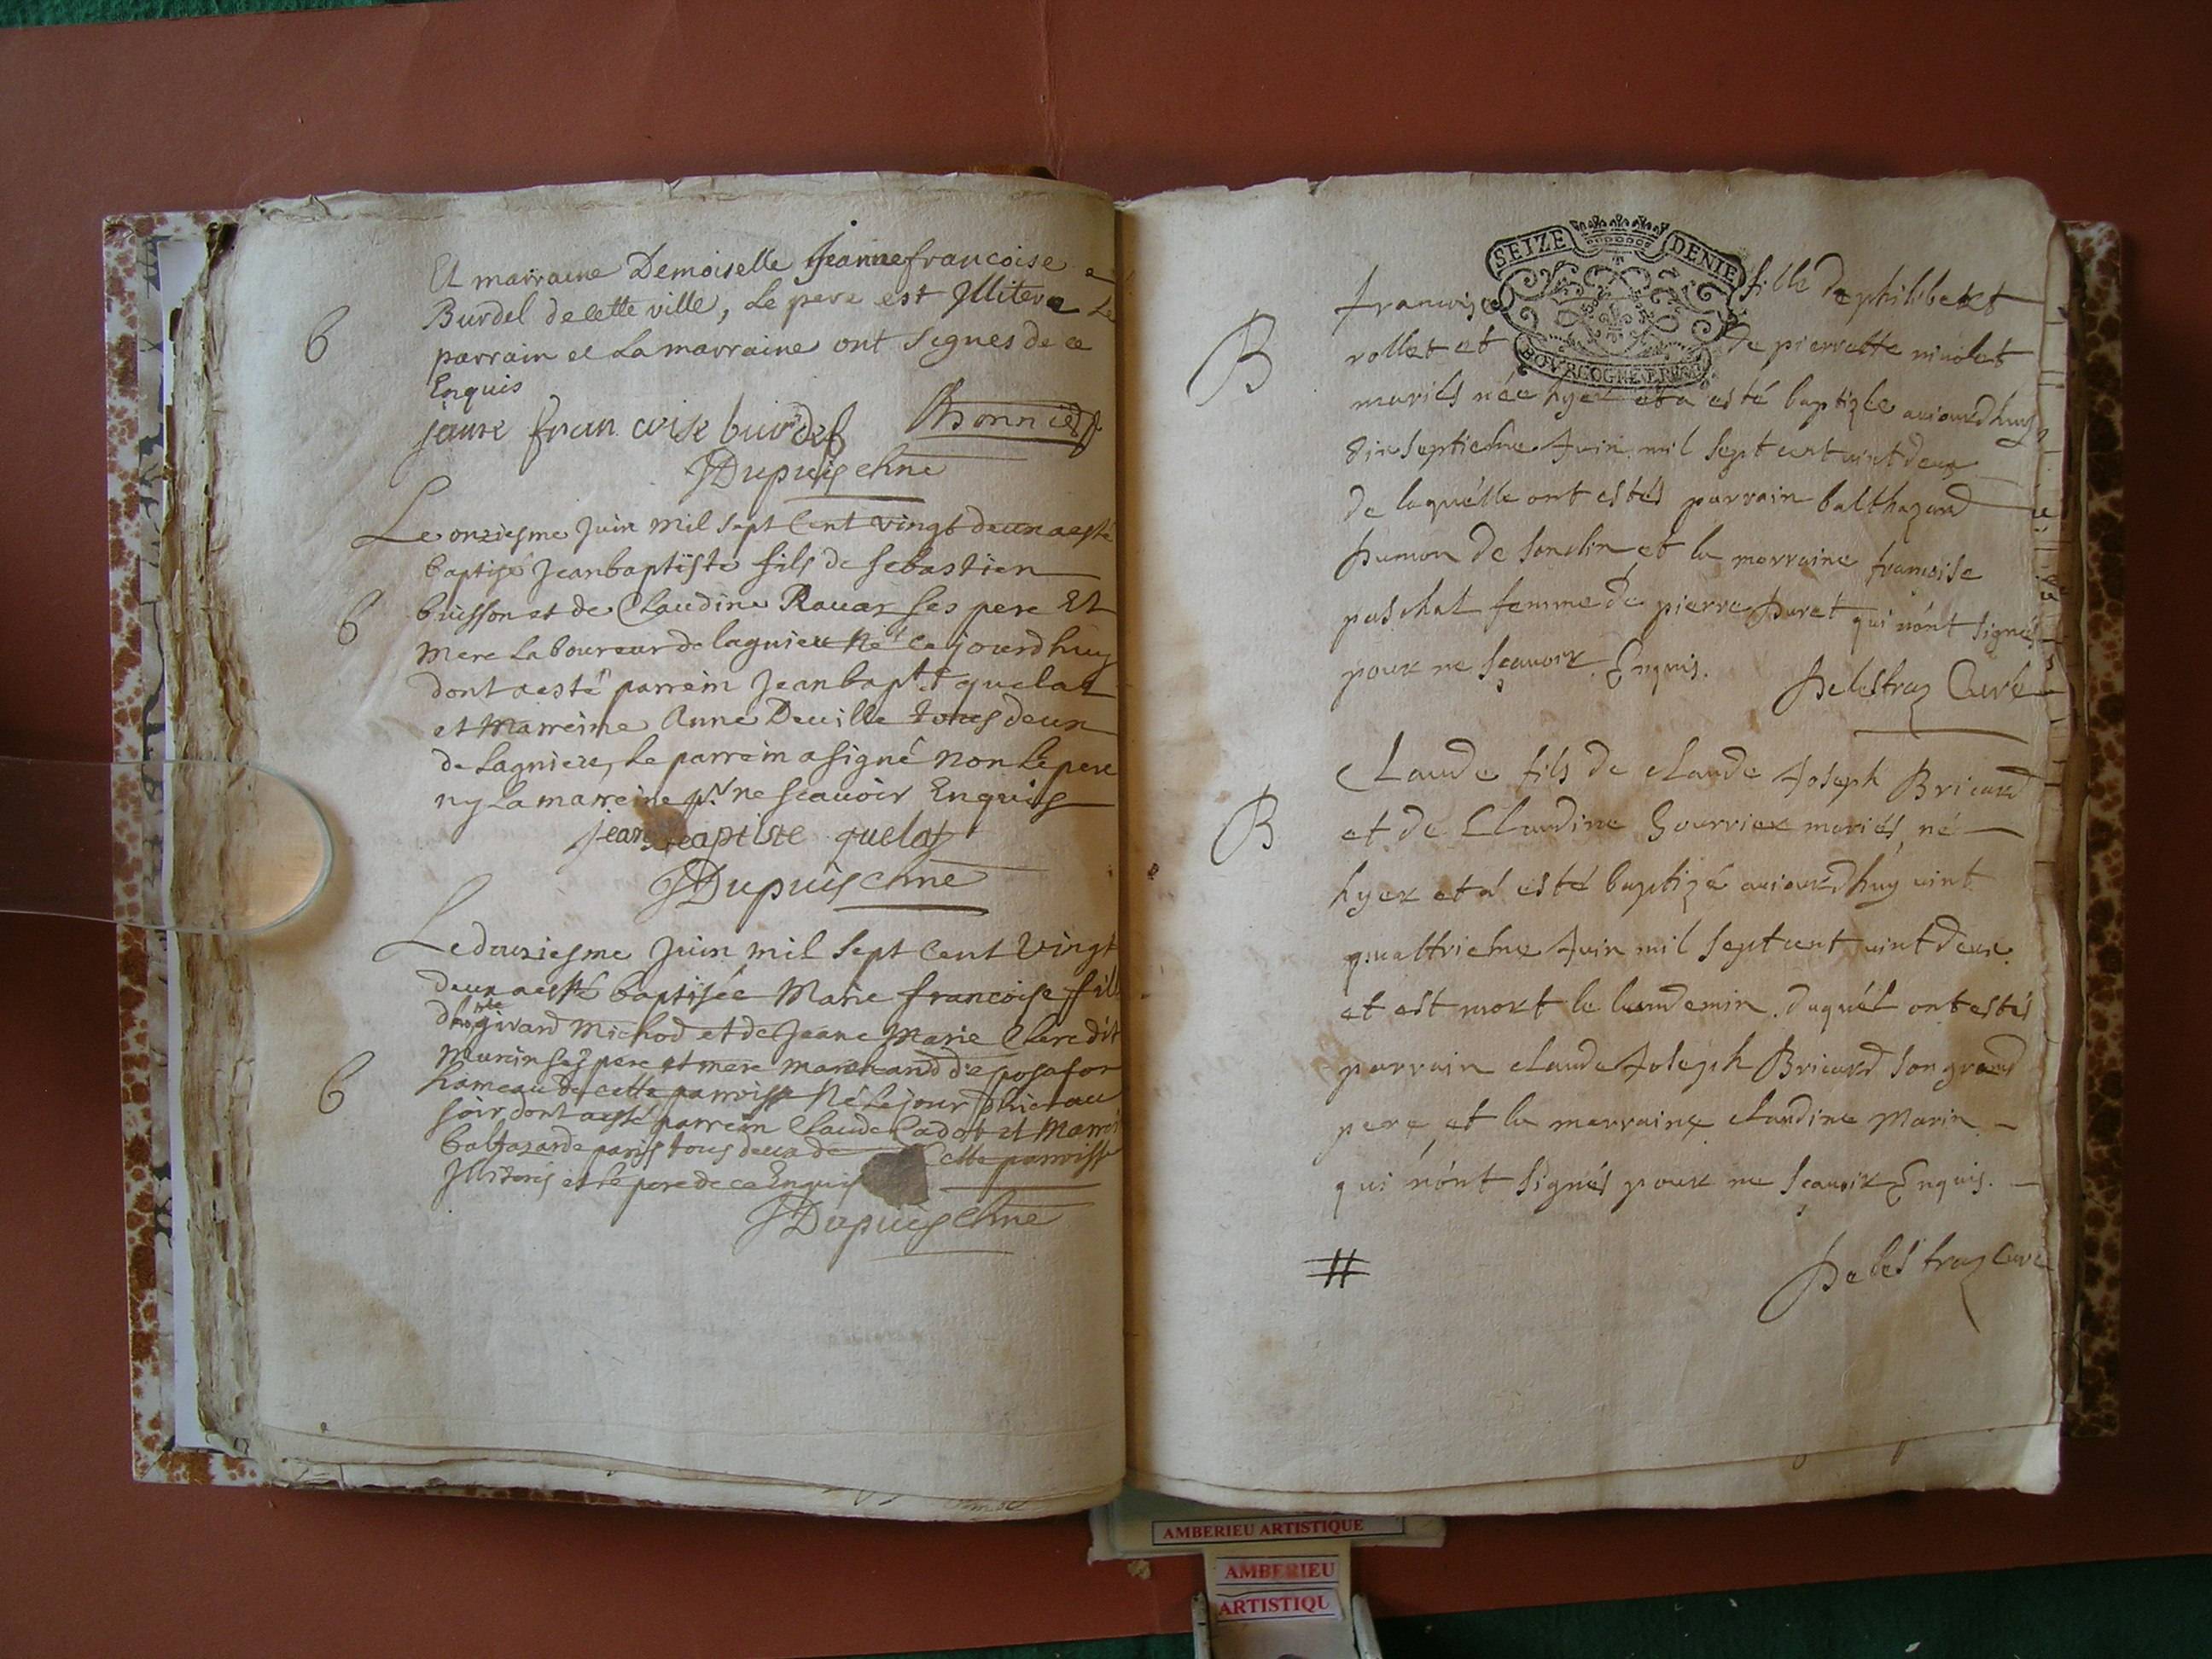 Et marraine Demoiselle Jeanne francoise
Burdel de cette ville, Le pere est Illitere Le
6
parrain et La marraine ont signes de ce
Enquis
janne fran coise burdel
JDupuis chne
Le onziesme Juin mil sept Cent vingt deux a esté
baptisé Jean baptiste fils de sebastien
6
buisson et de Claudine Ravar ses pere Et
mere Laboureur de lagnieu Né Ce jourdhuy
dont a esté parrein Jean bapt.t quelat
et Marreine Anne Deville tous deux
de Lagnieu, Le parrein a signé non Le pere
ny La marreine p.r ne scavoir Enquis
jean baptiste quelat
JDupuis chne
Le douziesme Juin mil sept Cent Vingt
deux a esté baptisée Marie francoise fill
girard Michod et de Jeane Marie Clerc dit
ses pere et mere marchand de posafor
6
hameau de cette parroisse Né Le jour d'hier au
soir, dont a esté parrein Claude Cadot et Marrei
baltazarde paris tous deux de Cette parroisse
Illiteris et le pere de ce Enquis
JDupuis chne
SEIZE DENIE
BOURGOGNE
francoise fille de philibert
B
rollet et de pierrette nicolet
mariés née hyer et a esté baptizée aujourdhuy
dix septieme Juin mil sept cent vint deux
de laquelle ont estés parrain balthazard
Dumon de sonclin et la marraine francoise
paschal femme de pierre Duret qui n'ont signés
pour ne sçavoir Enquis.
Delestraz Curé
Claude fils de claude Joseph Bricard
B
et de Claudine Gourrier mariés, né
hyer et a esté baptizé aujourdhuy vint
quattrieme Juin mil sept cent vint deux
et est mort le lendemin. duquél ont estés
parrain claude Joseph Bricard son grand
pere et la marraine claudine Marin
qui n'ont signés pour ne sçavoir Enquis.
#
Delestraz Curé
AMBERIEU ARTISTIQUE
AMBERIEU
ARTISTIQU